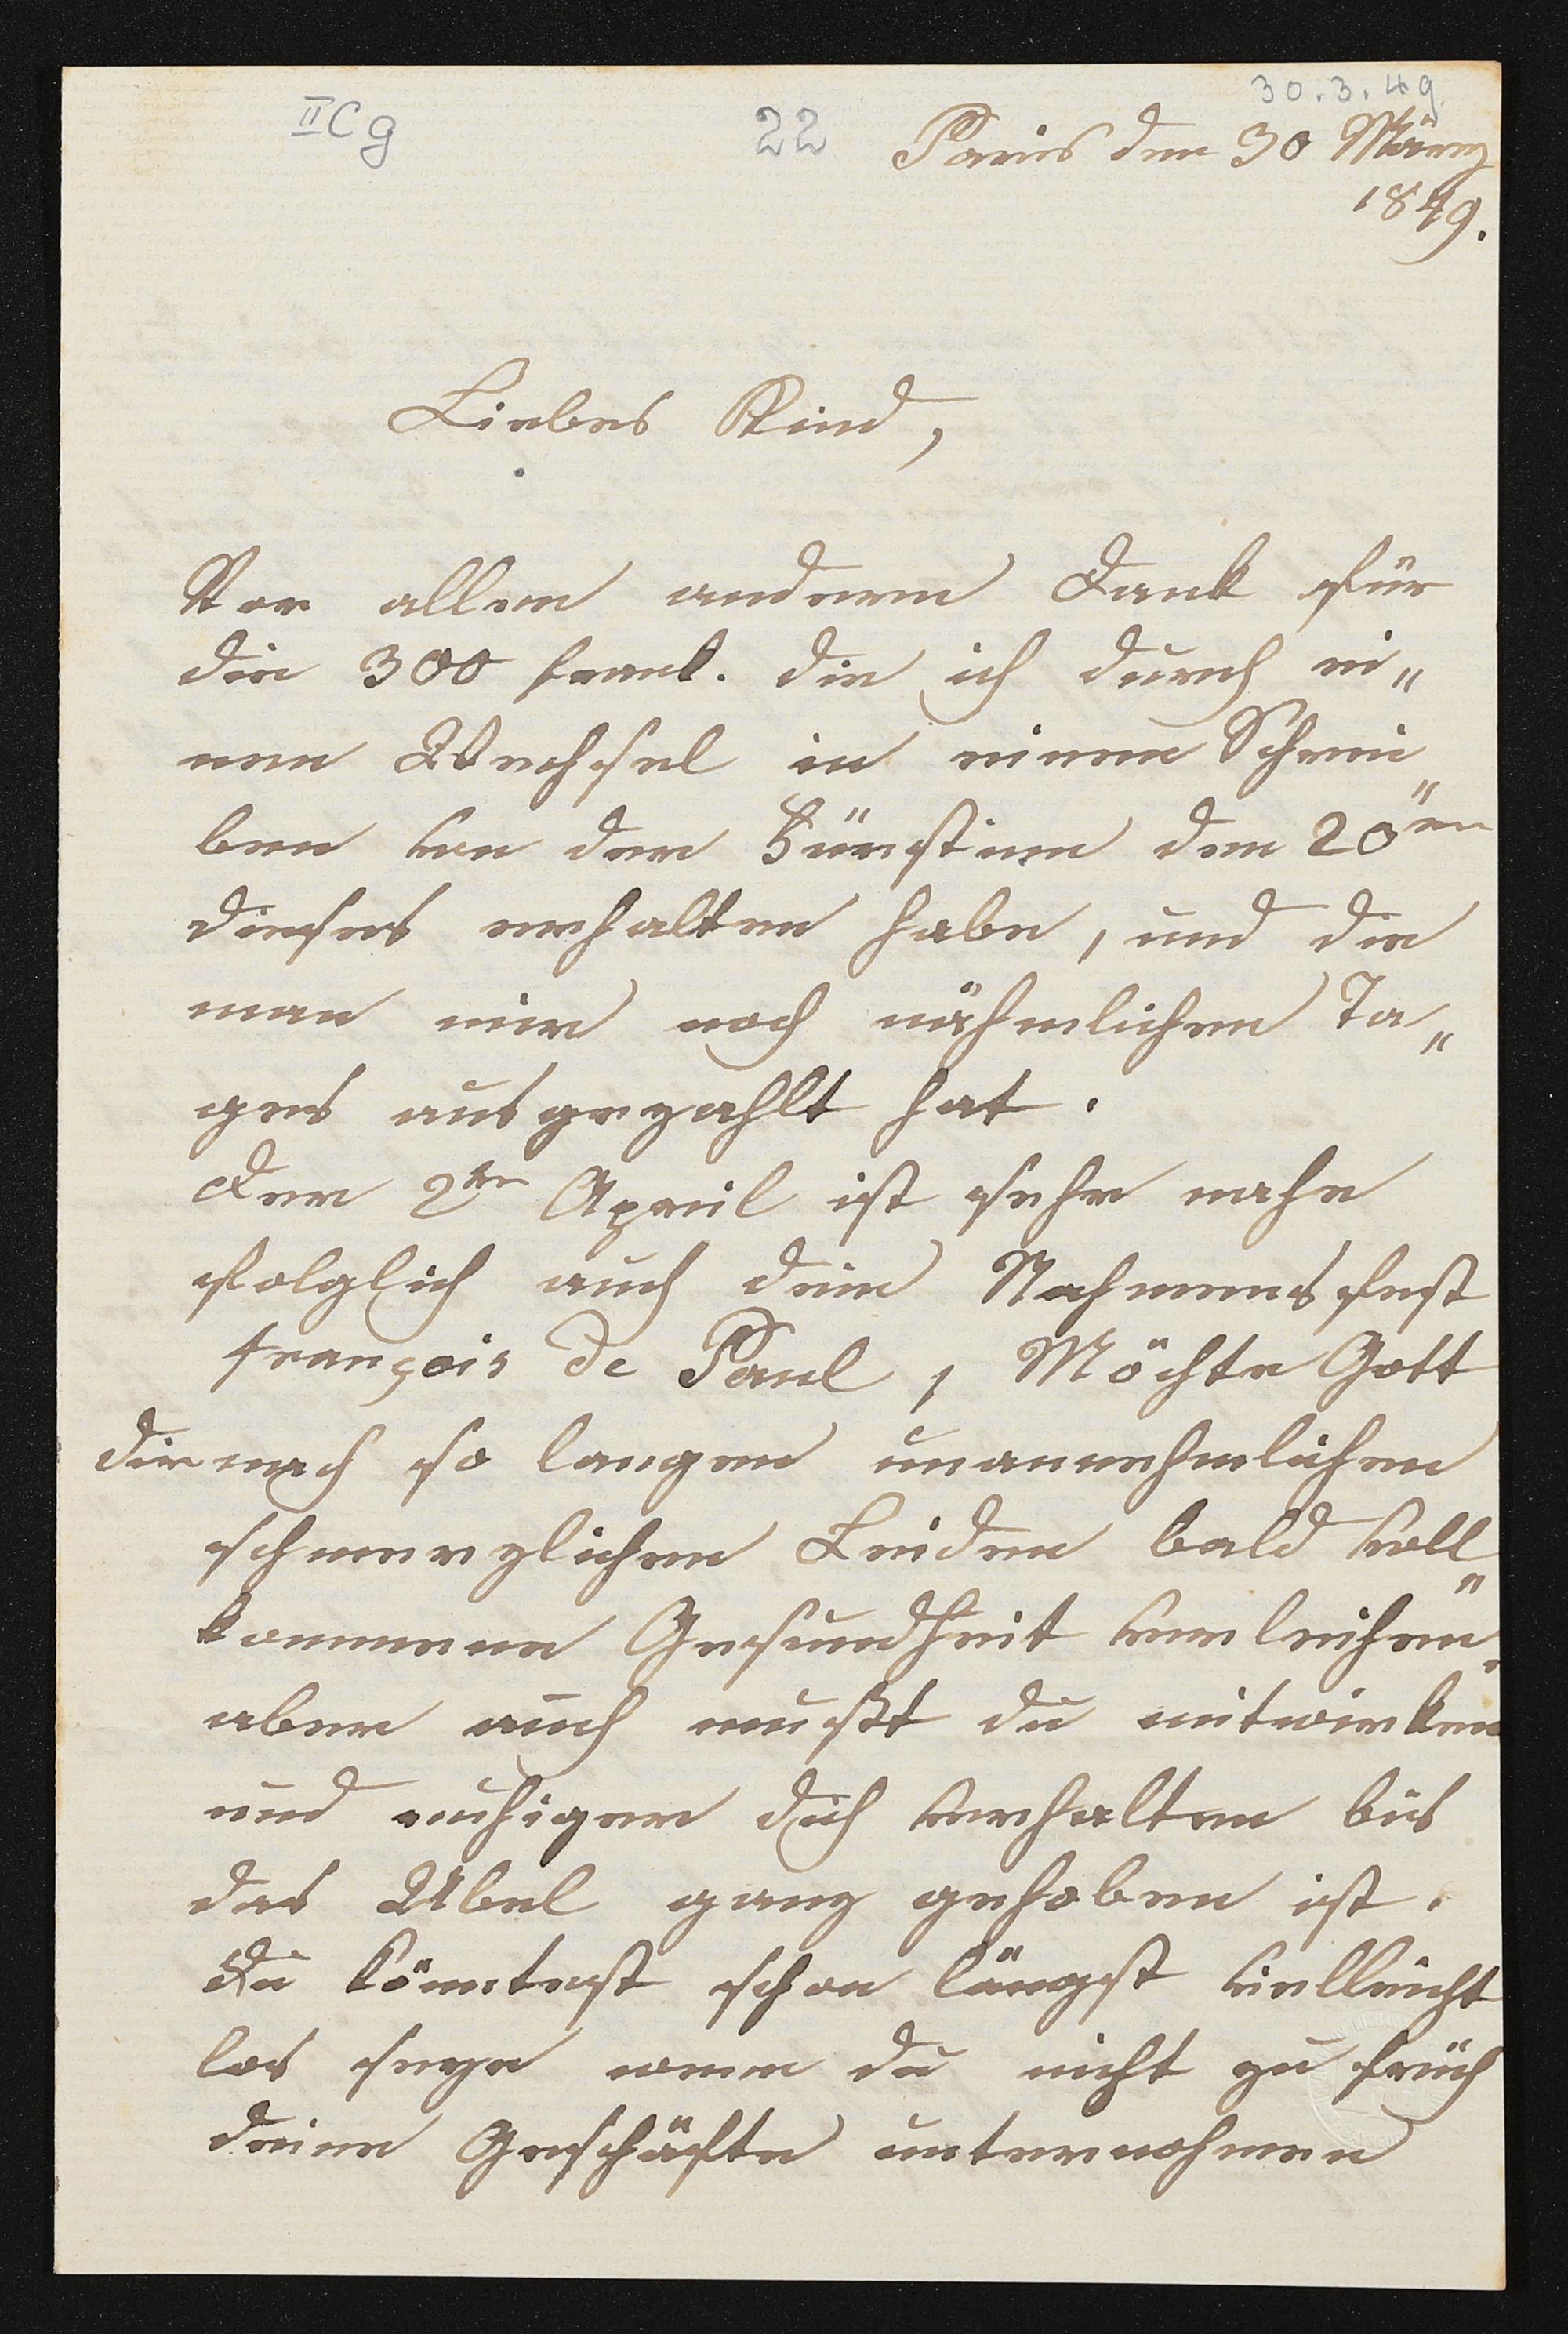 30.3.49.
II C g 22 Paris den 30 März
1849.
Liebes Kind,
Vor allem anderen Dank für
die 300 frank. die ich durch ei„
nen Wechsel in einem Schrei„
ben von der Fürstinn den 20ten
dieses erhalten habe, und die
man mir noch nähmlichen Ta„
ges ausgezahlt hat.
Der 2te April ist sehr nahe
folglich auch dein Nahmensfest
françois de Paul, Möchte Gott
dir nach so langen unannehmlichen
schmerzlichen Leiden bald voll„
kommene Gesundheit verleihen,
aber auch mußt du mitwirken
und ruhiger dich verhalten bis
das Übel ganz gehoben ist.
Du könntest schon längst vielleicht
los seyn wenn du nicht zu früh
deine Geschäfte unternohmen